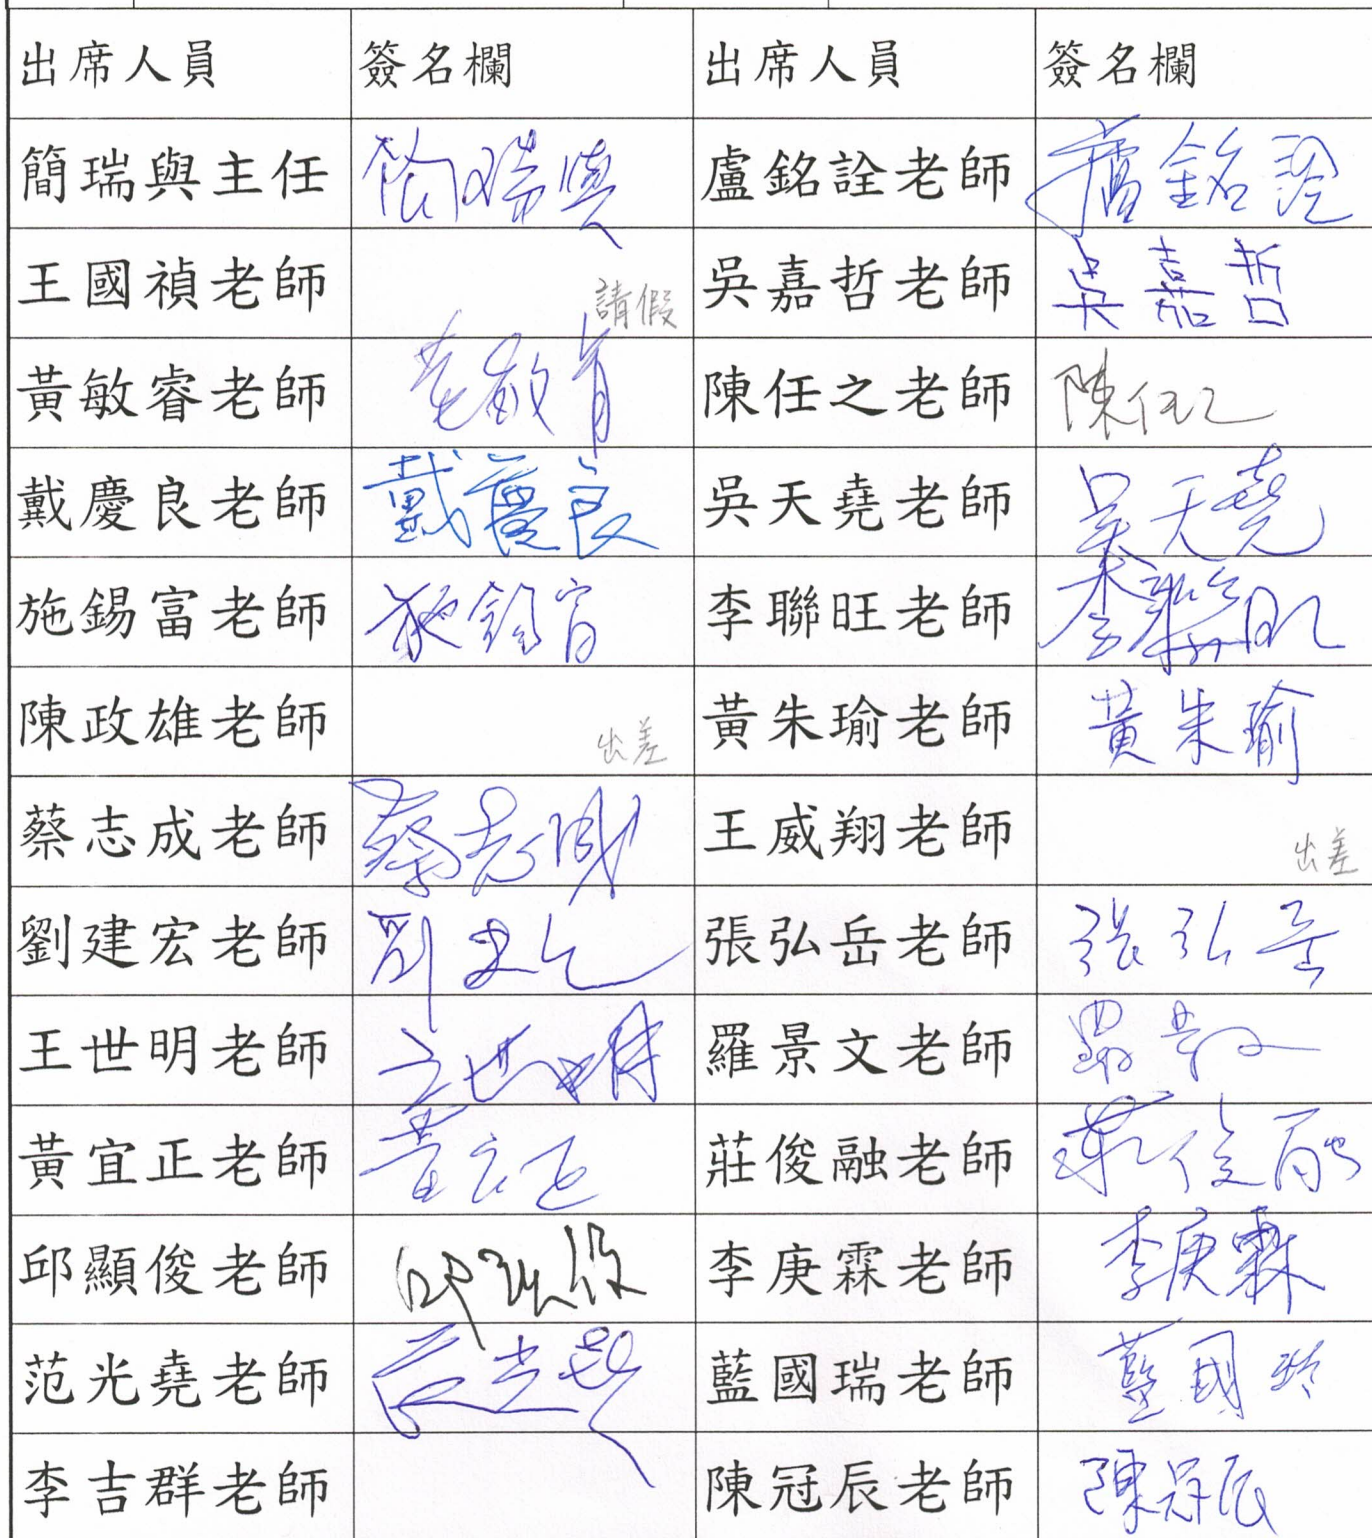 出席人員 簽名欄 出席人員 簽名欄
簡瑞與主任 簡瑞與 盧銘詮老師 盧銘詮
王國禎老師 請假 吳嘉哲老師 吳嘉哲
黃敏睿老師 黃敏睿 陳任之老師 陳任之
戴慶良老師 戴慶良 吳天堯老師 吳天堯
施錫富老師 施錫富 李聯旺老師 李聯旺
陳政雄老師 出差 黃朱瑜老師 黃朱瑜
蔡志成老師 蔡志成 王威翔老師 出差
劉建宏老師 劉建宏 張弘岳老師 張弘岳
王世明老師 王世明 羅景文老師 羅景文
黃宜正老師 黃宜正 莊俊融老師 莊俊融
邱顯俊老師 邱顯俊 李庚霖老師 李庚霖
范光堯老師 范光堯 藍國瑞老師 藍國瑞
李吉群老師 陳冠辰老師 陳冠辰